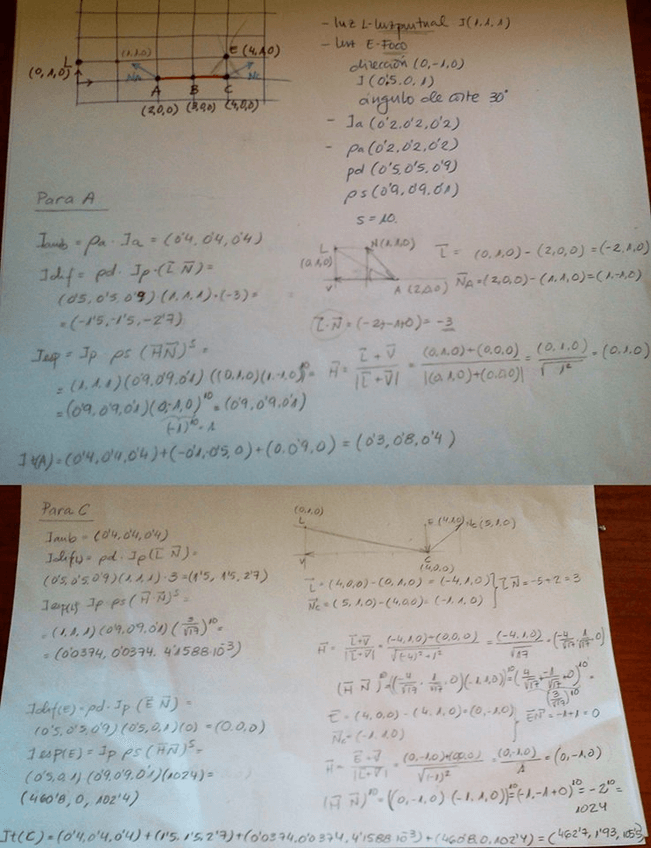 L
(0,1,0)
(1,1,0)
E (4,1,0)
NA
Nc
A
B
C
(2,0,0) (3,0,0) (4,0,0)
- luz L-luz puntual I(1,1,1)
- luz E-Foco
dirección (0,-1,0)
I (0'5,0,1)
ángulo de corte 30°
- Ia (0'2,0'2,0'2)
- ρa (0'2,0'2,0'2)
ρd (0'5,0'5,0'9)
ρs (0'9,0'9,0'1)
s = 10.
Para A
Iamb = ρa · Ia = (0'4,0'4,0'4)
Idif = ρd · Ip · (L̄ N̄) =
(0'5,0'5,0'9) (1,1,1) · (-3) =
= (-1'5,-1'5,-2'7)
L
(0,1,0)
N(1,1,0)
V
A (2,0,0)
L̄ = (0,1,0) - (2,0,0) = (-2,1,0)
N̄A = (2,0,0) - (1,1,0) = (1,-1,0)
L̄·N̄ = (-2,-1,0) = -3
Iesp = Ip · ρs (H̄N̄)^s =
= (1,1,1) (0'9,0'9,0'1) ((0,1,0)(1,-1,0))^10 =
= (0'9,0'9,0'1) (0,-1,0)^10 = (0'9,0'9,0'1)
(-1)^10 = 1
H̄ = L̄+V̄ / |L̄+V̄| = (0,1,0)+(0,0,0) / |(0,1,0)+(0,0,0)| = (0,1,0) / √1² = (0,1,0)
It(A) = (0'4,0'4,0'4) + (-0'1,-0'5,0) + (0,0'9,0) = (0'3,0'8,0'4)
Para C
Iamb = (0'4,0'4,0'4)
Idif(L) = ρd · Ip (L̄ N̄) =
(0'5,0'5,0'9) (1,1,1) · 3 = (1'5, 1'5, 2'7)
Iesp(L) = Ip ρs (H̄·N̄)^s =
= (1,1,1) (0'9,0'9,0'1) (3/√17)^10 =
= (0'0374,0'0374, 4'1588·10^-3)
(0,1,0)
L
V
E (4,1,0)
Nc (5,1,0)
C
(4,0,0)
L̄ = (4,0,0) - (0,1,0) = (-4,1,0)
N̄c = (5,1,0) - (4,0,0) = (-1,1,0)
L̄N̄ = -5+2 = 3
H̄ = L̄+V̄ / |L̄+V̄| = (-4,1,0)+(0,0,0) / √(-4)²+1² = (-4,1,0) / √17 = (-4/√17, 1/√17, 0)
(H̄ N̄)^10 = ((-4/√17, 1/√17, 0)(-1,1,0))^10 = (4/√17 + -1/√17 + 0)^10 =
(3/√17)^10
Idif(E) = ρd · Ip (Ē N̄) =
(0'5,0'5,0'9) (0'5,0,1) (0) = (0,0,0)
Iesp(E) = Ip ρs (H̄N̄)^s =
(0'5,0,1) (0'9,0'9,0'1) (1024) =
(460'8, 0, 102'4)
Ē = (4,0,0) - (4,1,0) = (0,-1,0)
N̄c = (-1,1,0)
ĒN̄ = -1+1 = 0
H̄ = Ē+V̄ / |L̄+V̄| = (0,-1,0)+(0,0,0) / √(-1)² = (0,-1,0) / 1 = (0,-1,0)
(H̄ N̄)^10 = ((0,-1,0) (-1,1,0))^10 = (-1,-1+0)^10 = -2^10 =
1024
It(C) = (0'4,0'4,0'4) + (1'5,1'5,2'7) + (0'0374,0'0374,4'1588·10^-3) + (460'8,0,102'4) = (462'7, 1'93, 105'5)